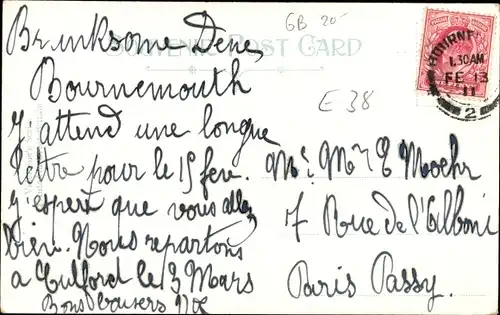 GB 20-
SOUVENIR POST CARD
E 38
BOURNEM
1.30AM
FE 13
11
2
Brunksome Dene
Bournemouth
J'attend une longue
lettre pour le 15 fev.
J'espert que vous allez
bien. Nous repartons
a Culford le 3 Mars
Bons baisers
Mr. Mr E Moehr
7 Rue de l'Alboni
Paris Passy.